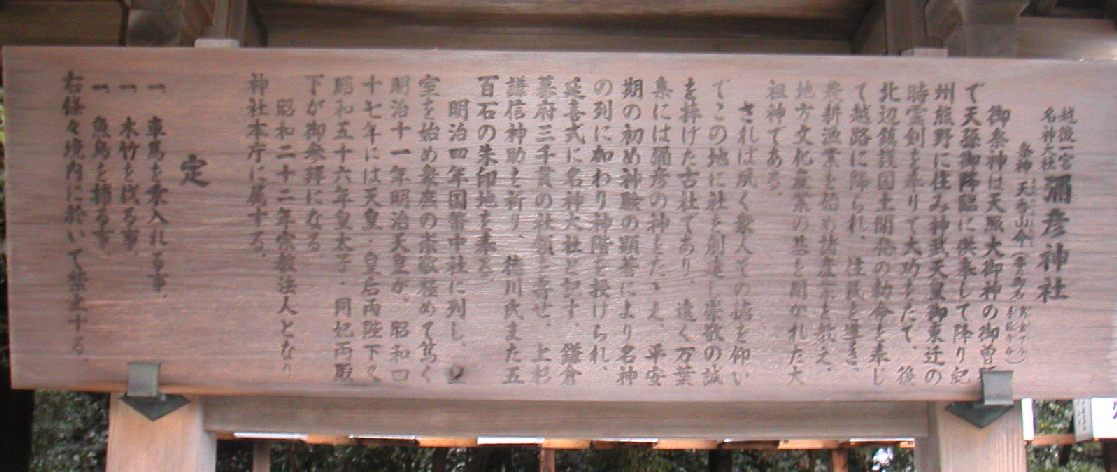 越後一宮
名神大社
彌彦神社
祭神 天香山命
御祭神は天照大御神の御曽孫
で天孫御降臨に供奉して降り紀
州熊野に住み神武天皇御東迁の
時霊剣を奉りて大功をたて、後
北辺鎮護国土開発の勅命を奉じ
て越路に降られ、住民を導き、
農耕漁業を始め諸産業を教え、
地方文化産業の基を開かれた大
祖神である。
されば夙く衆人その徳を仰い
でこの地に社を創建し崇敬の誠
を捧げた古社であり、遠く万葉
集には彌彦の神とたゝえ、平安
期の初め神験の顕著により名神
の列に加わり神階を授けられ、
延喜式に名神大社と記す、鎌倉
幕府三千貫の社領を寄せ、上杉
謙信神助を祈り、徳川氏また五
百石の朱印地を奉る。
明治四年国幣中社に列し、皇
室を始め衆庶の崇敬極めて篤く
明治十一年明治天皇が、昭和四
十七年には天皇・皇后両陛下又
昭和五十六年皇太子・同妃両殿
下が御参拝になる
昭和二十二年宗教法人となり
神社本庁に属する。
定
一 車馬を乗入れる事、
一 木竹を伐る事、
一 魚鳥を捕る事、
右條々境内に於いて禁止する、